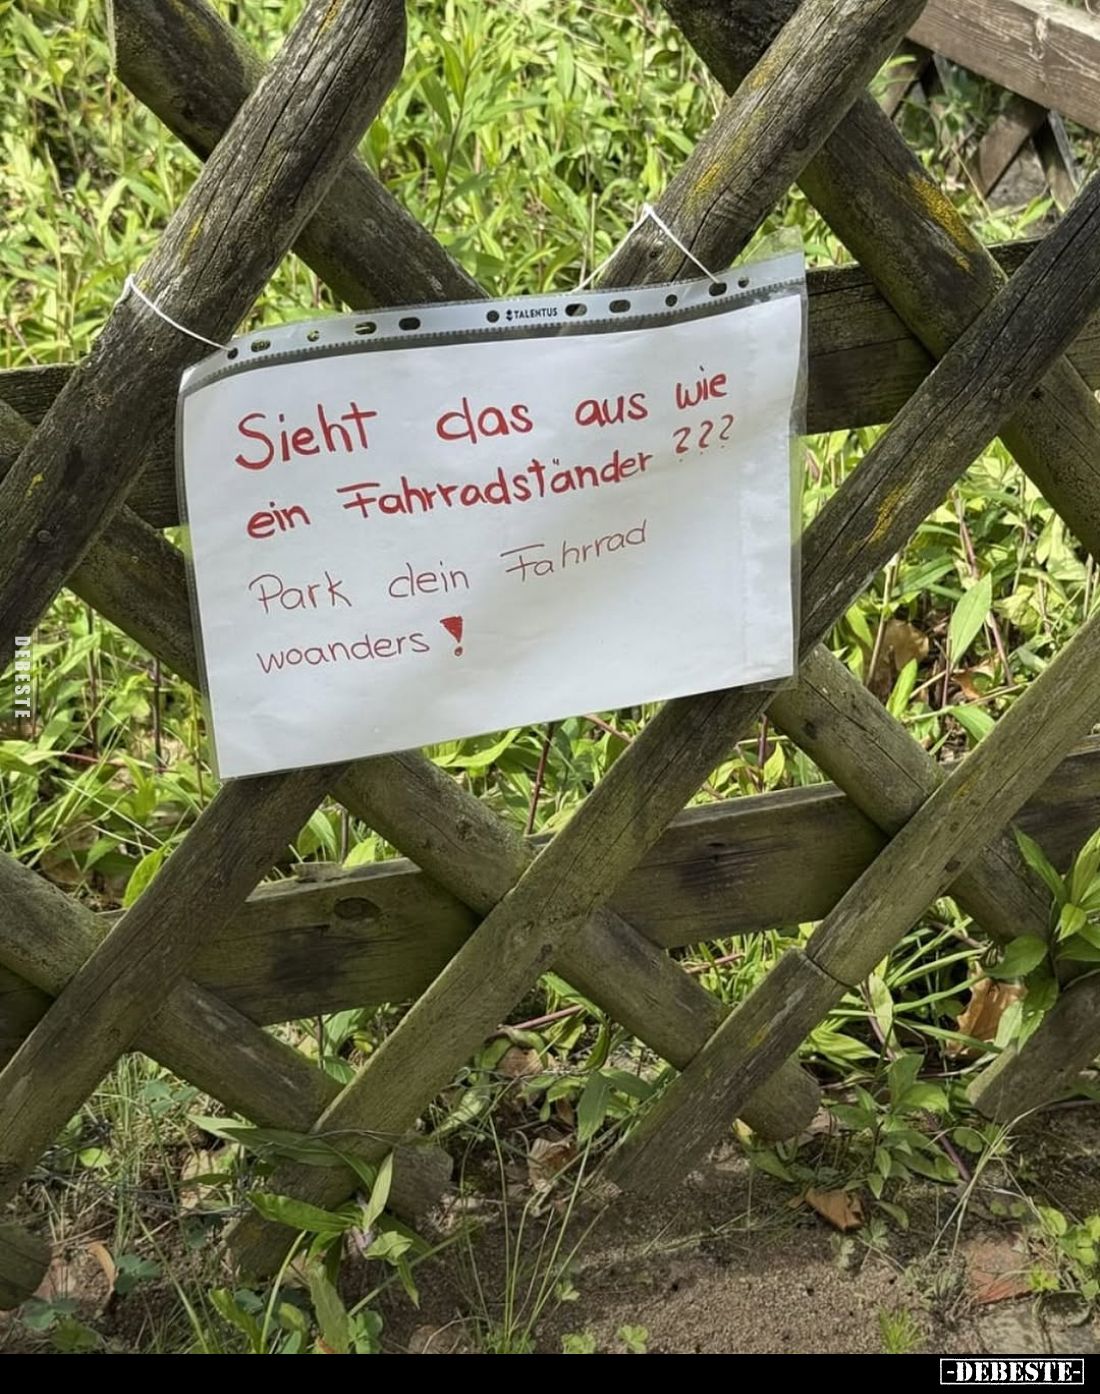 TALENTUS
Sieht das aus wie
ein Fahrradständer ???
Park dein Fahrrad
woanders!
DEBESTE
-DEBESTE-